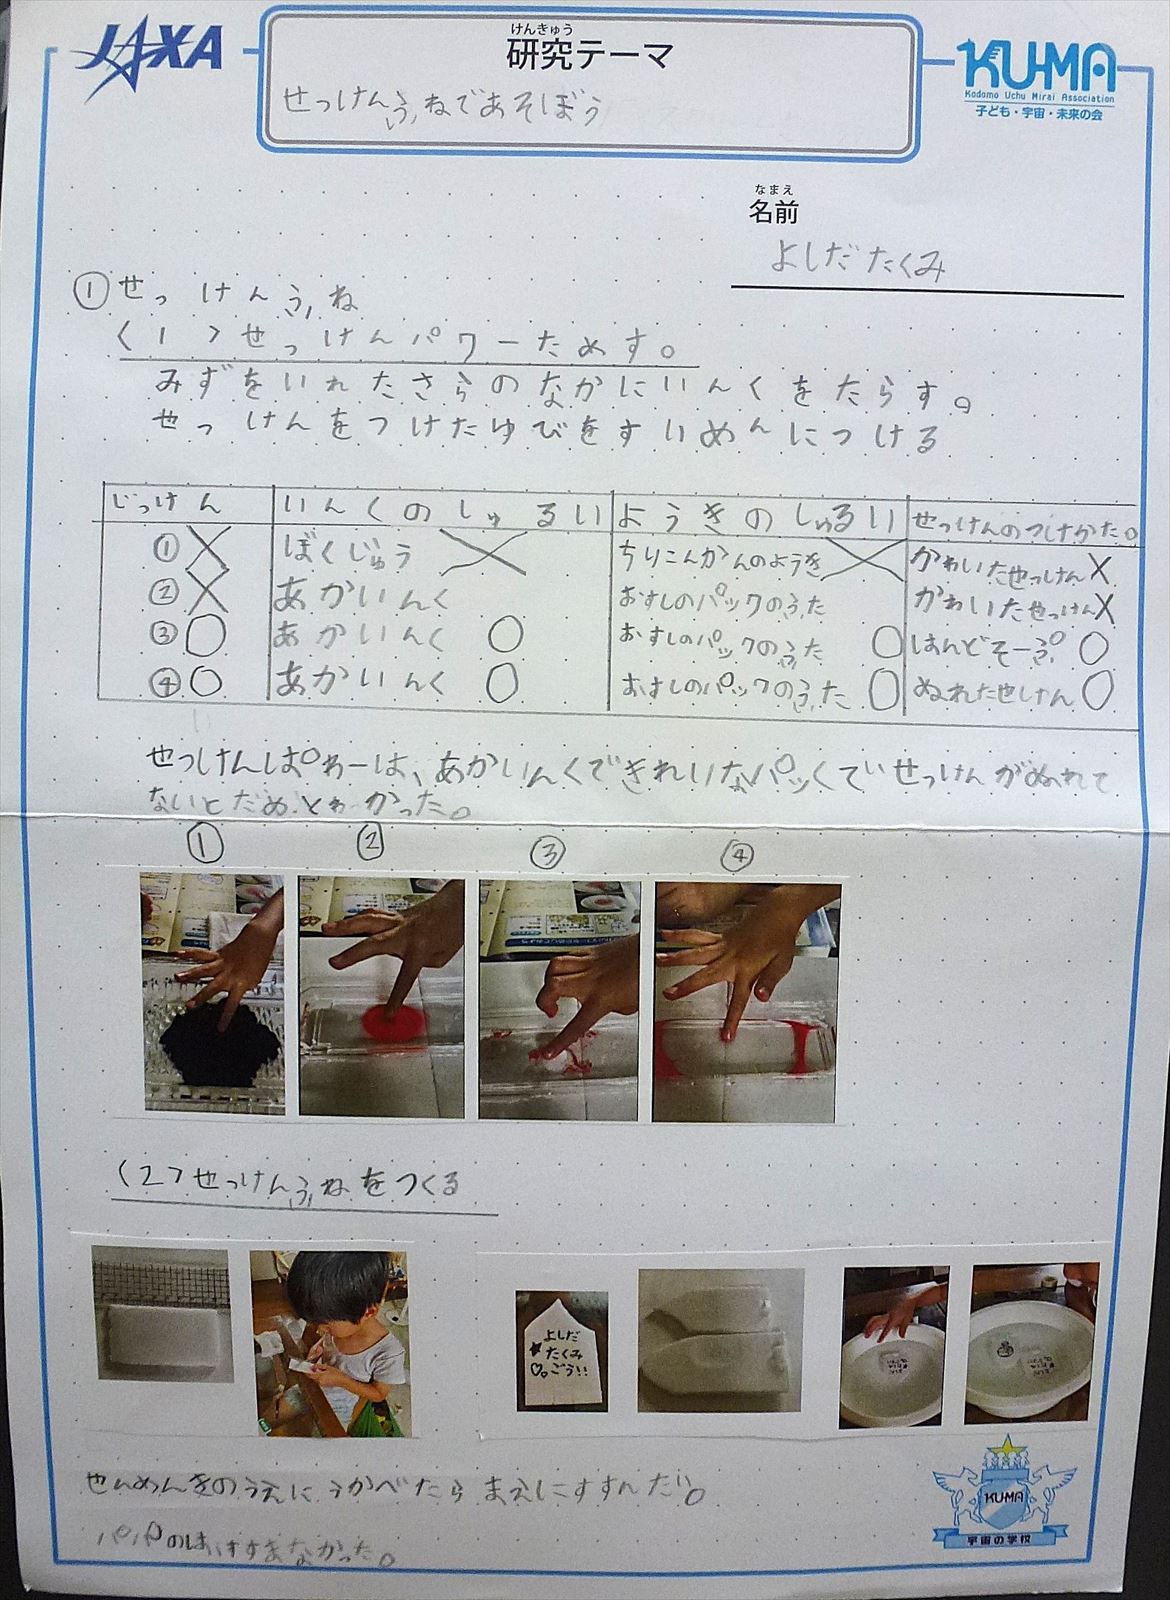 JAXA
けんきゅう
研究テーマ
せっけんふねであそぼう
KU-MA
Kodomo Uchu Mirai Association
子ども・宇宙・未来の会
なまえ
名前
よしだたくみ
①せっけんふね
〈1〉せっけんパワーためす。
みずをいれたさらのなかにいんくをたらす。
せっけんをつけたゆびをすいめんにつける
じっけん いんくのしゅるい ようきのしゅるい せっけんのつけかた。
①× ぼくじゅう × ちりこんかんのようき × かわいたせっけん×
②× あかいんく おすしのパックのふた かわいたせっけん×
③○ あかいんく ○ おすしのパックのふた ○ はんどそーぷ ○
④○ あかいんく ○ おすしのパックのふた ○ ぬれたせけん ○
せっけんぱわーは、あかいんくできれいなパックでせっけんがぬれて
ないとだめとわかった。
① ② ③ ④
〈2〉せっけんふねをつくる
よしだ
★たくみ
♡。ごう!!
せんめんきのうえにうかべたらまえにすすんだ。
パパのはすすまなかった。
KU-MA
宇宙の学校